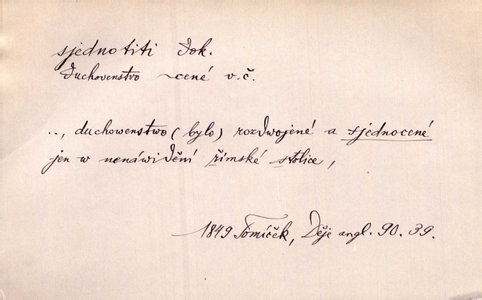 sjednotiti dok.
Duchovenstvo ~cené v.č.
.., duchowenstwo (bylo) rozdwojené a sjednocené
jen w nenáwidění římské stolice,
1849 Tomíček, Děje angl. 90. 39.